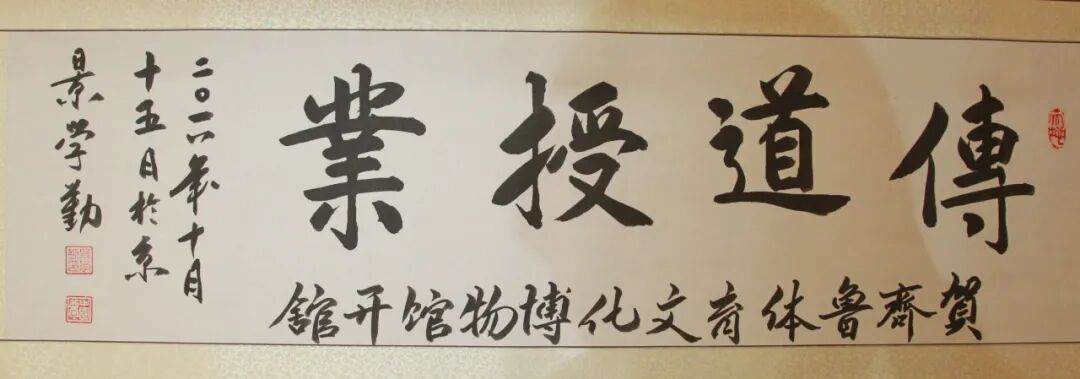 傳道授業
賀齊魯体育文化博物馆开舘
二〇一八年十月
十五日於京
景学勤